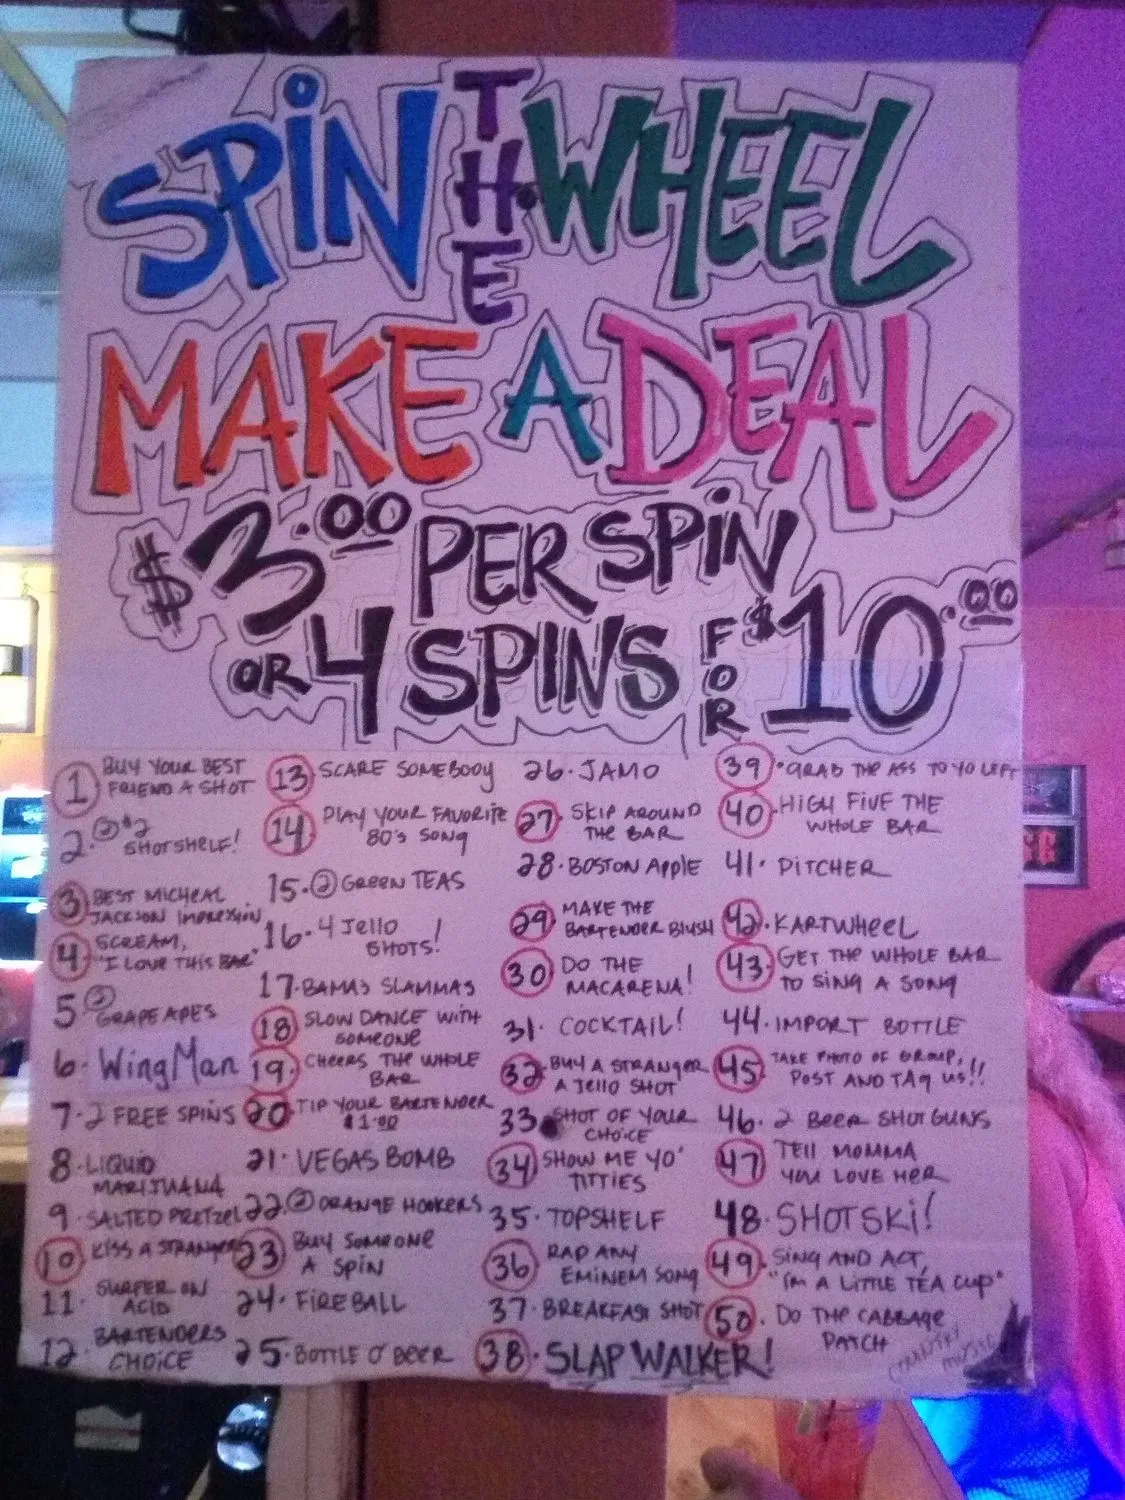 SPIN THE WHEEL
MAKE A DEAL
$3.00 PER SPIN
OR 4 SPINS FOR $10.00
1 BUY YOUR BEST
FRIEND A SHOT
2. ② $2
SHOTSHELF!
3 BEST MICHEAL
JACKSON IMPRESSION
4 SCREAM,
"I LOVE THIS BAR"
5 ②
GRAPE APES
6. WingMan
7. 2 FREE SPINS
8. LIQUID
MARIJUANA
9. SALTED PRETZEL
10 KISS A STRANGER
11. SURFER ON
ACID
12. BARTENDERS
CHOICE
13 SCARE SOMEBODY
14 PLAY YOUR FAVORITE
80's SONG
15. ② GREEN TEAS
16. 4 JELLO
SHOTS!
17. BAMAS SLAMMAS
18 SLOW DANCE WITH
SOMEONE
19. CHEERS THE WHOLE
BAR
20 TIP YOUR BARTENDER
$1.00
21. VEGAS BOMB
22. ② ORANGE HOOKERS
23 BUY SOMEONE
A SPIN
24. FIREBALL
25. BOTTLE O' BEER
26. JAMO
27. SKIP AROUND
THE BAR
28. BOSTON APPLE
29. MAKE THE
BARTENDER BLUSH
30 DO THE
MACARENA!
31. COCKTAIL!
32. BUY A STRANGER
A JELLO SHOT
33. SHOT OF YOUR
CHOICE
34 SHOW ME YO'
TITTIES
35. TOPSHELF
36 RAP ANY
EMINEM SONG
37. BREAKFAST SHOT
38. SLAP WALKER!
39 GRAB THE ASS TO YO LEFT
40. HIGH FIVE THE
WHOLE BAR
41. PITCHER
42. KARTWHEEL
43. GET THE WHOLE BAR
TO SING A SONG
44. IMPORT BOTTLE
45. TAKE PHOTO OF GROUP,
POST AND TAG US!!
46. 2 BEER SHOTGUNS
47 TELL MOMMA
YOU LOVE HER
48. SHOTSKI!
49. SING AND ACT,
"I'M A LITTLE TEA CUP"
50. DO THE CABBAGE
PATCH